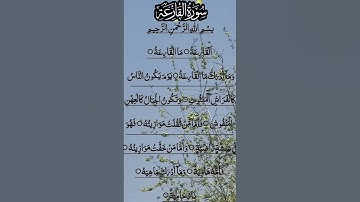 سُورَةُ الْقَارِعَة
بِسْمِ اللهِ الرَّحْمٰنِ الرَّحِيْمِ
اَلْقَارِعَةُ ○ مَا الْقَارِعَةُ ○
وَمَا اَدْرٰىكَ مَا الْقَارِعَةُ ○ يَوْمَ يَكُوْنُ النَّاسُ
كَالْفَرَاشِ الْمَبْثُوْثِ ○ وَتَكُوْنُ الْجِبَالُ كَالْعِهْنِ
الْمَنْفُوْشِ ○ فَاَمَّا مَنْ ثَقُلَتْ مَوَازِيْنُهٗ ○ فَهُوَ
○ وَاَمَّا مَنْ خَفَّتْ مَوَازِيْنُهٗ ○
فَاُمُّهٗ هَاوِيَةٌ ○ وَمَا اَدْرٰىكَ مَاهِيَهْ ○